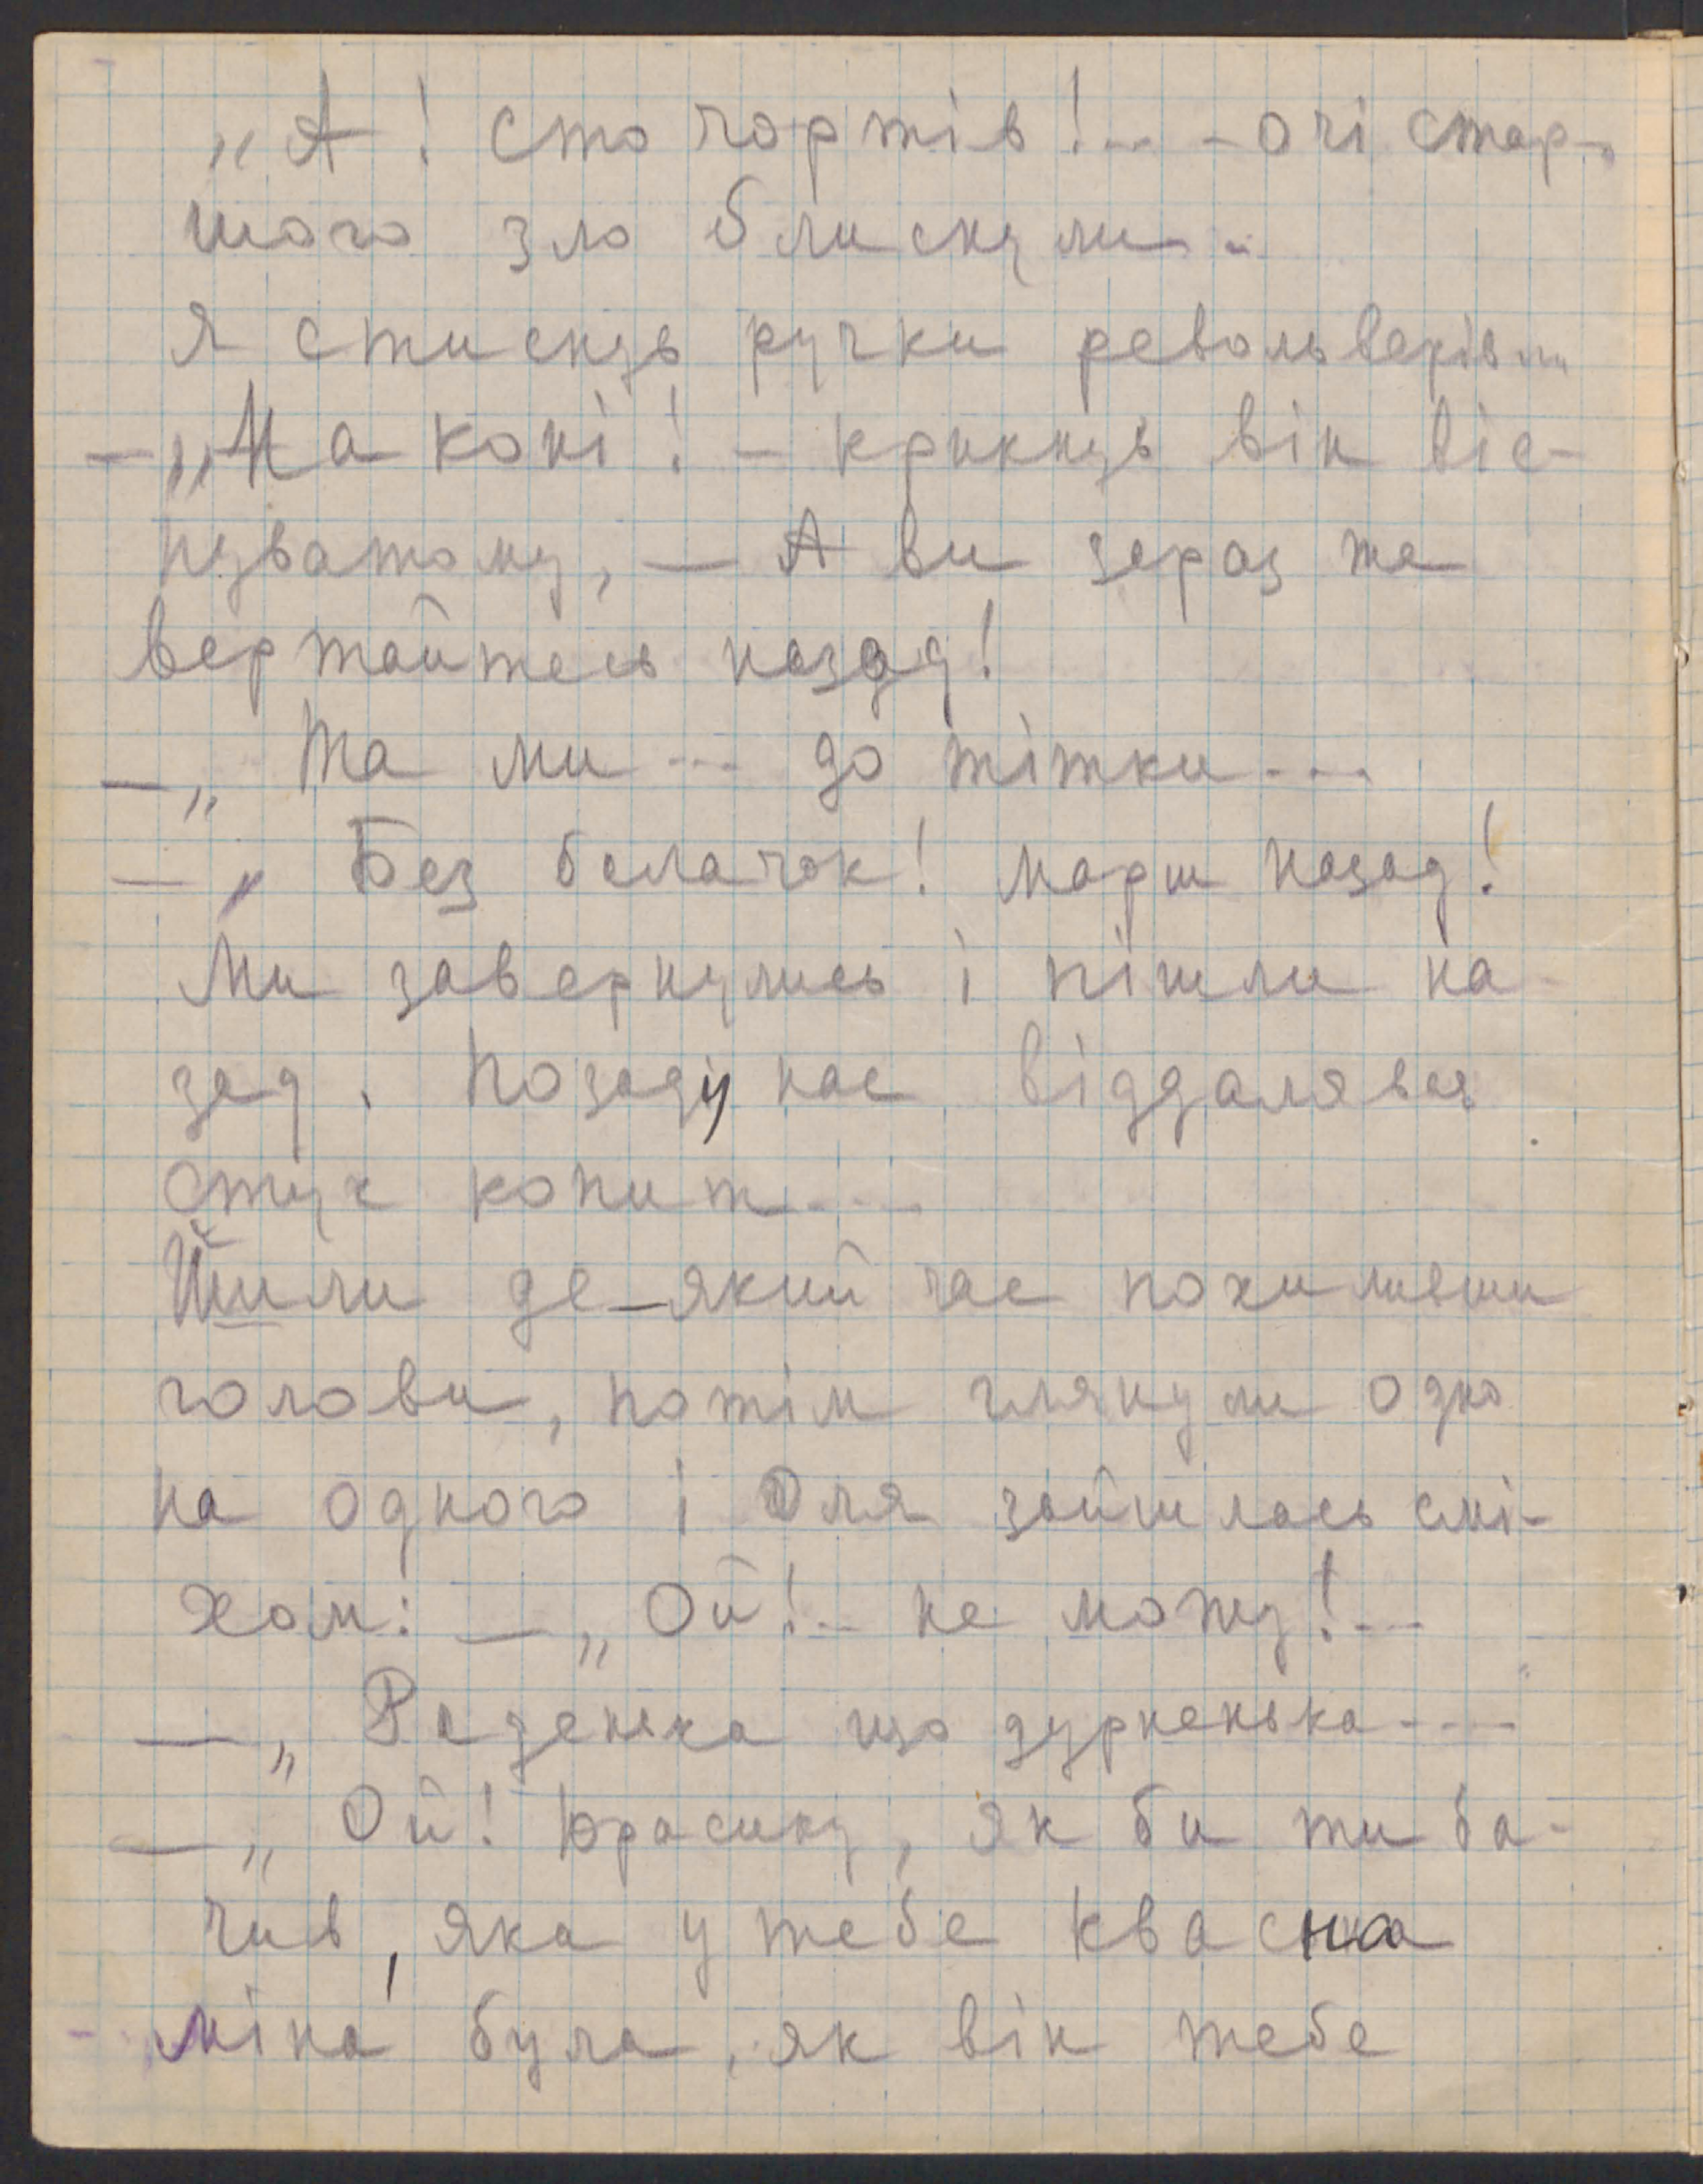 „А! сто чортів!.. - очі стар-
шого зло блиснули..
Я стиснув ручки револьверів...
— „На коні! - крикнув він віс-
пуватому, — А ви зараз же
вертайтесь назад!
— „Та ми ... до тітки ...
— „Без балачок! марш назад!
Ми завернулись і пішли на-
зад. Позаду нас віддалявся
стук копит....
Йшли де-який час похиливши
голови, потім глянули одно
на одного і Оля зайшлась смі-
хом: — „Ой!.. не можу!...
— „Раденька що дурненька...."
— „Ой! Юрасику, як би ти ба-
чив, яка у тебе квасна
міна була, як він тебе